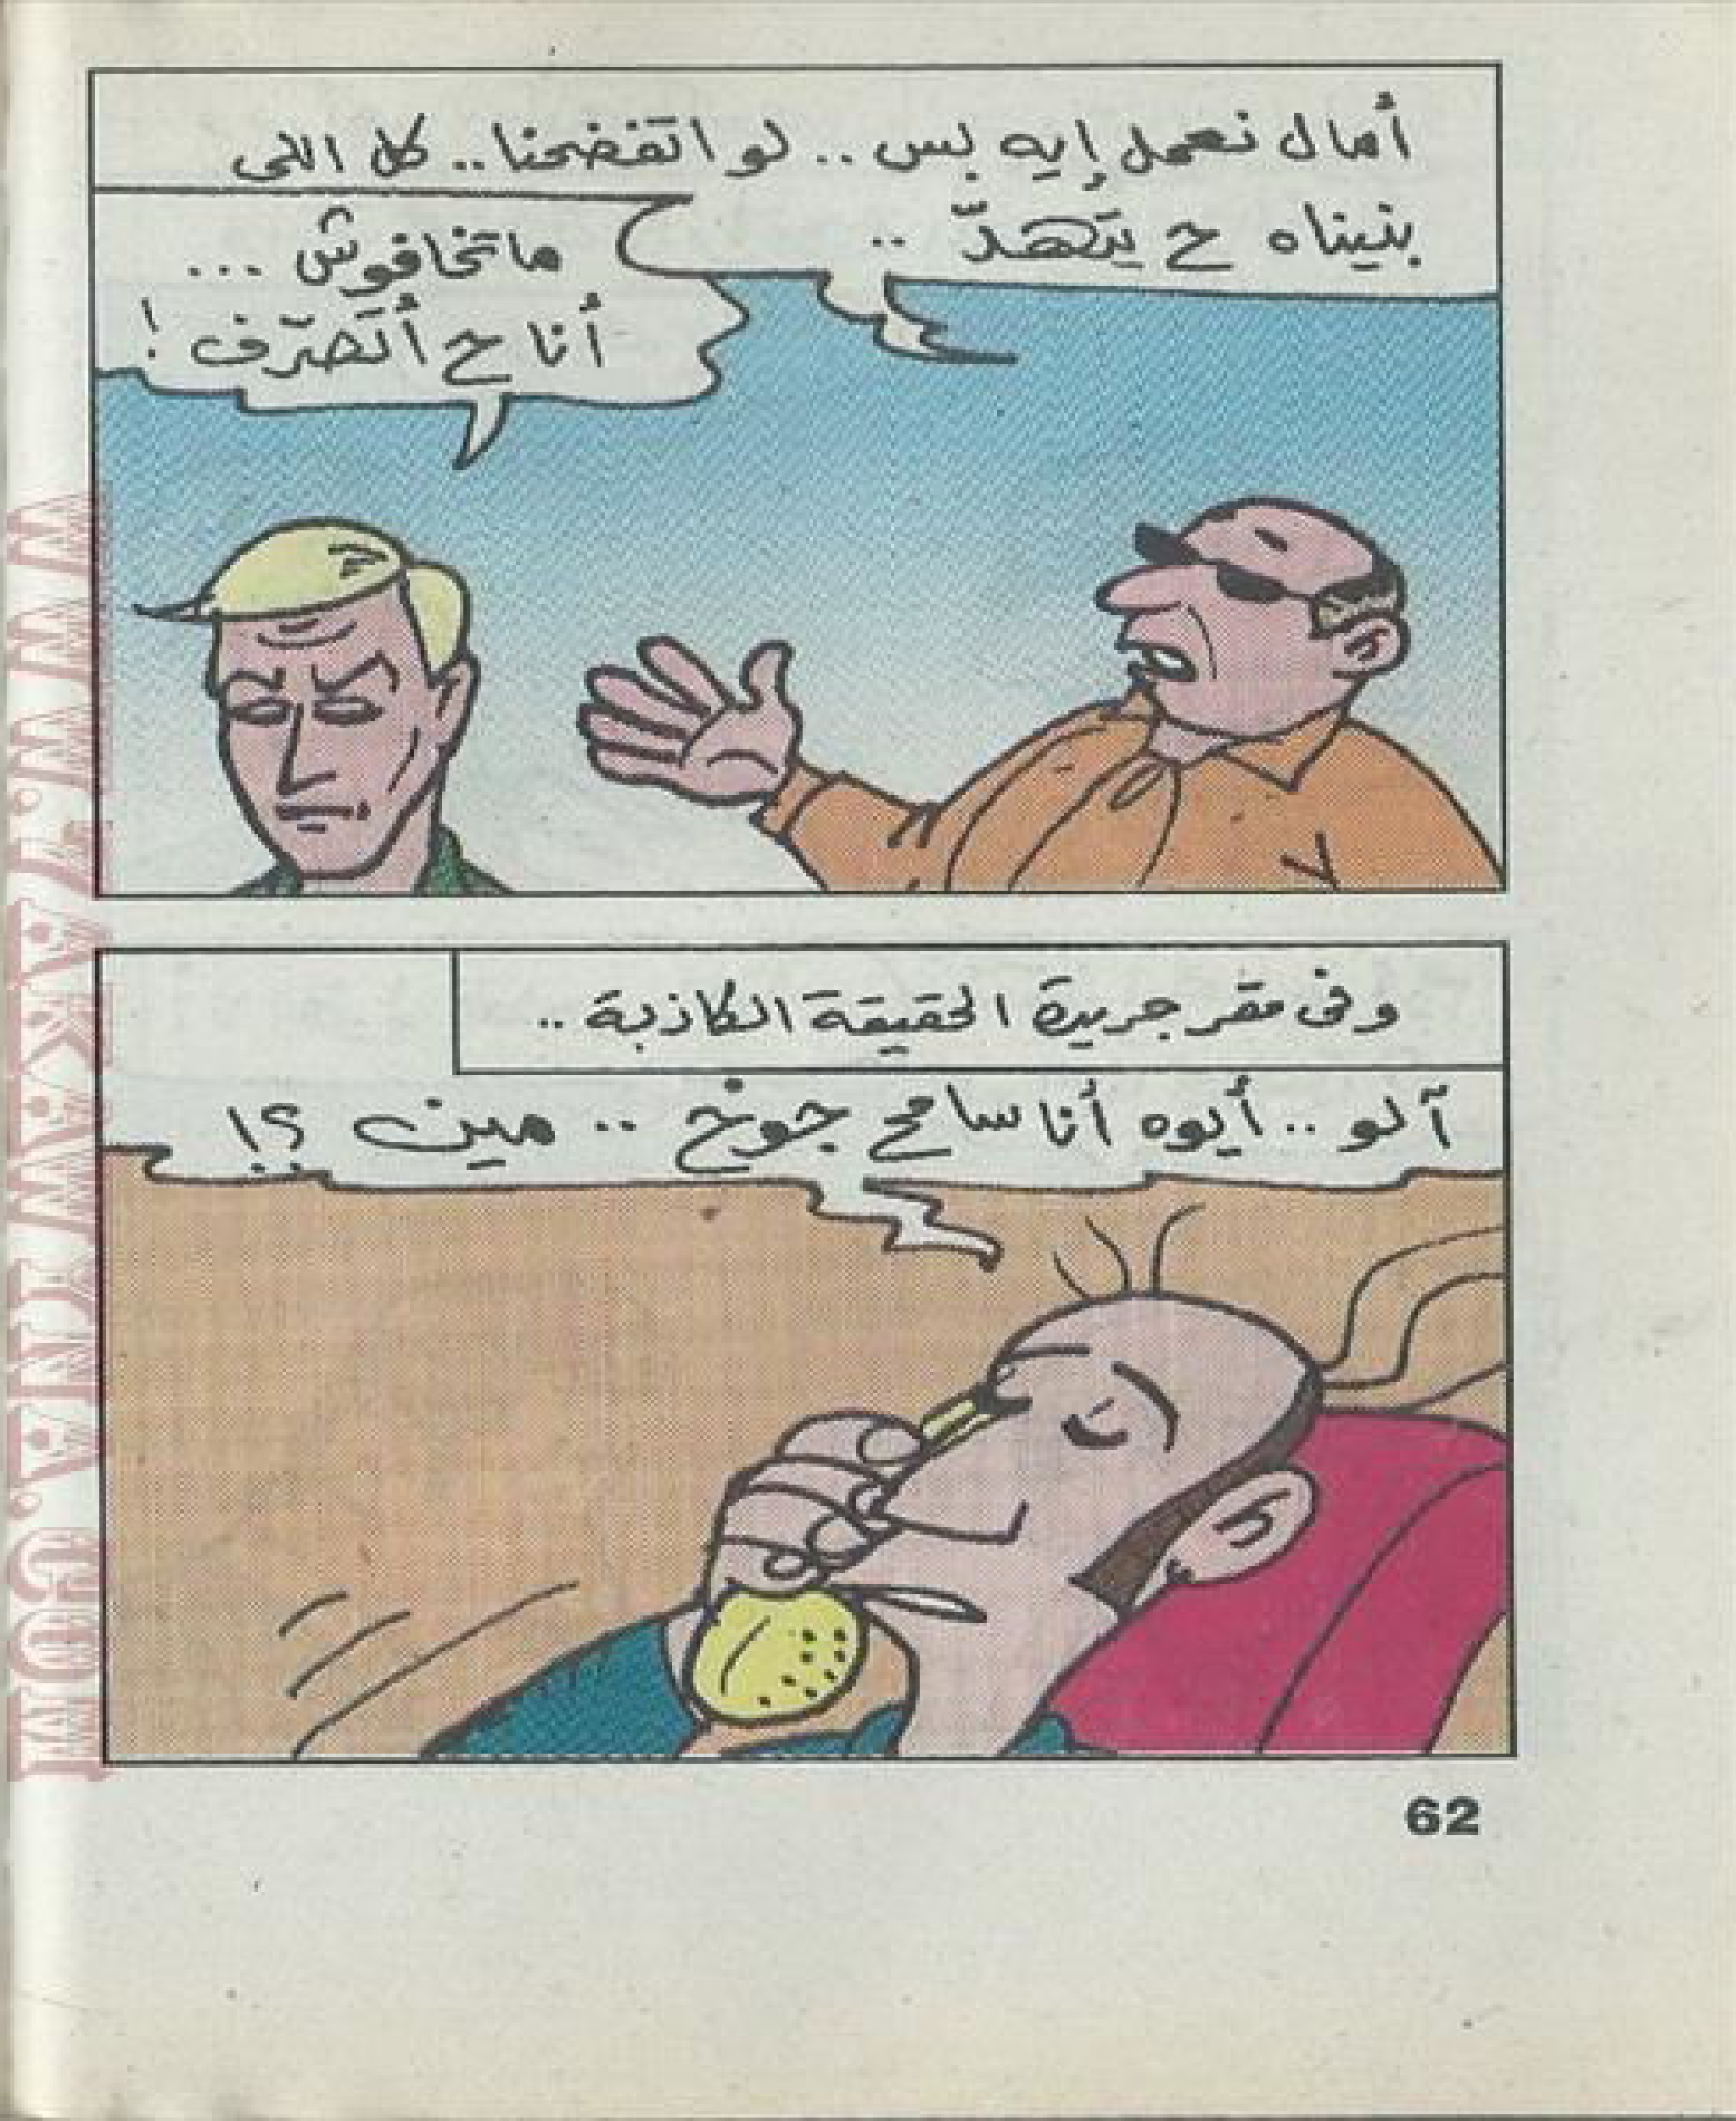 أمال نعمل إيه بس .. لو اتفضحنا .. كل اللى
بنيناه ح يتهدّ ..
ما تخافوش ...
أنا ح أتصرّف !
وفى مقر جريدة الحقيقة الكاذبة ..
آلو .. أيوه أنا سامح جوخ .. مين ؟!
62